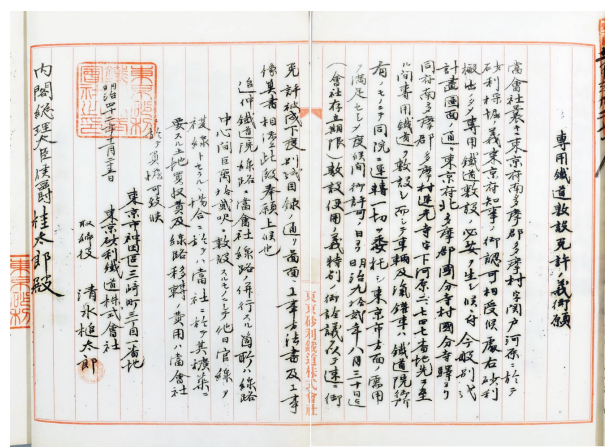 専用鉄道敷設免許ノ義御願
當會社曩キニ東京府南多摩郡多摩村字関戸河原ニ於テ
砂利採掘ノ義東京府知事ノ御認可相受候處右砂利
搬出ノ為メ専用鉄道敷設ノ必要ヲ生シ候ニ付今般別紙
計畫圖面ノ通リ東京府北多摩郡國分寺村國分寺驛ヨリ
同府南多摩郡多摩村連光寺字下河原二千七番地先ニ至
ル間専用鐵道ヲ敷設シ而シテ車輌及滊鑵車ハ鐵道院御所
有ノモノヲ同院ニ運轉一切ヲ委托シ東京市方面ノ需用
ヲ満足セシメ度候間御許可ノ日ヨリ明治九拾貮年八月三十日迠
(會社存立期限)敷設使用ノ義特別ノ御詮議ヲ以テ速ニ御
免許被成下度別紙目録ノ通リ圖面工事方法書及工事
豫算書相添ヘ此段奉願上候也
追伸鐵道院線路ト當會社線路ト併行スル箇所ハ線路
中心間距離拾貮呎ニ敷設スルモノトシ他日官線ヲ
複線トセラルヽ場合ニ於テハ當社ニ於テ其擴築ニ
要スル土地買収費及線路移轉ノ費用ハ當會社
ニ於テ負擔可致候
明治四十二年三月二十五日
東京市神田區三崎町三丁目一番地
東京砂利鐵道株式會社
取締役 清水槌太郎
内閣総理大臣侯爵桂太郎殿
東京砂利鐵道株式會社